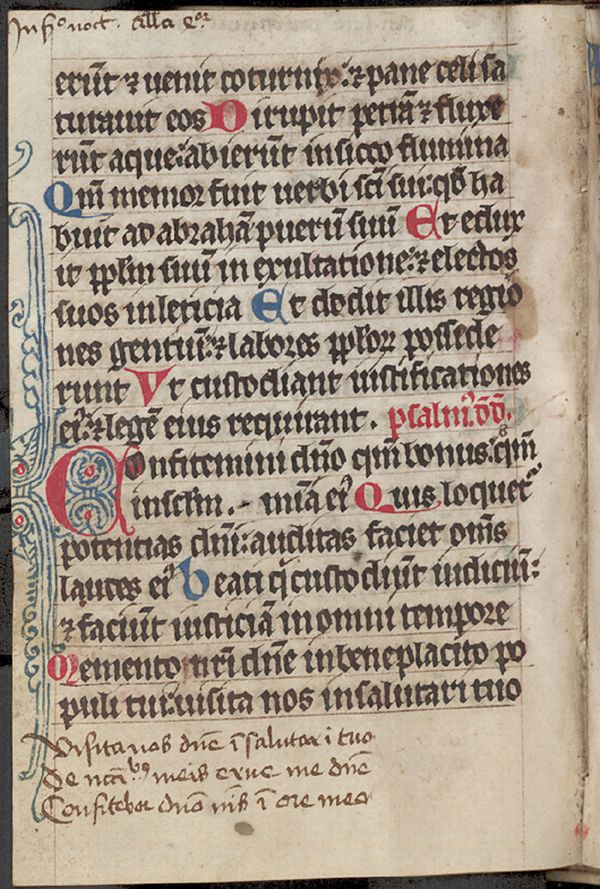 erūt ⁊ uenit coturnix: ⁊ pane celi sa
turauit eos Dirupit petrā ⁊ fluxe
rūt aque: abierūt in sicco flumina
Qm̄ memor fuit uerbi sc̄i sui: qd̄ ha
buit ad abrahā puerū suū Et edux
it pplm̄ suū in exultatione: ⁊ electos
suos in leticia Et dedit illis regio
nes gentiū: ⁊ labores pplorꝝ possede
runt Vt custodiant iustificationes
eiꝰ: ⁊ legē eius requirant. psalmꝰ dd̄.
Confitemini dn̄o qm̄ bonus: qm̄
in sclm̄. mīa eiꝰ Quis loquetꝰ
potencias dn̄i: auditas faciet om̄s
laudes eiꝰ Beati qͥ custodiūt iudiciū:
⁊ faciūt iusticiā in omni tempore
Memento nr̄i dn̄e in beneplacito po
puli tui: uisita nos in salutari tuo
Visita nos dn̄e ī salutari tuo
De meis erue me dn̄e
Confitebor dn̄o nīs ī ore meo